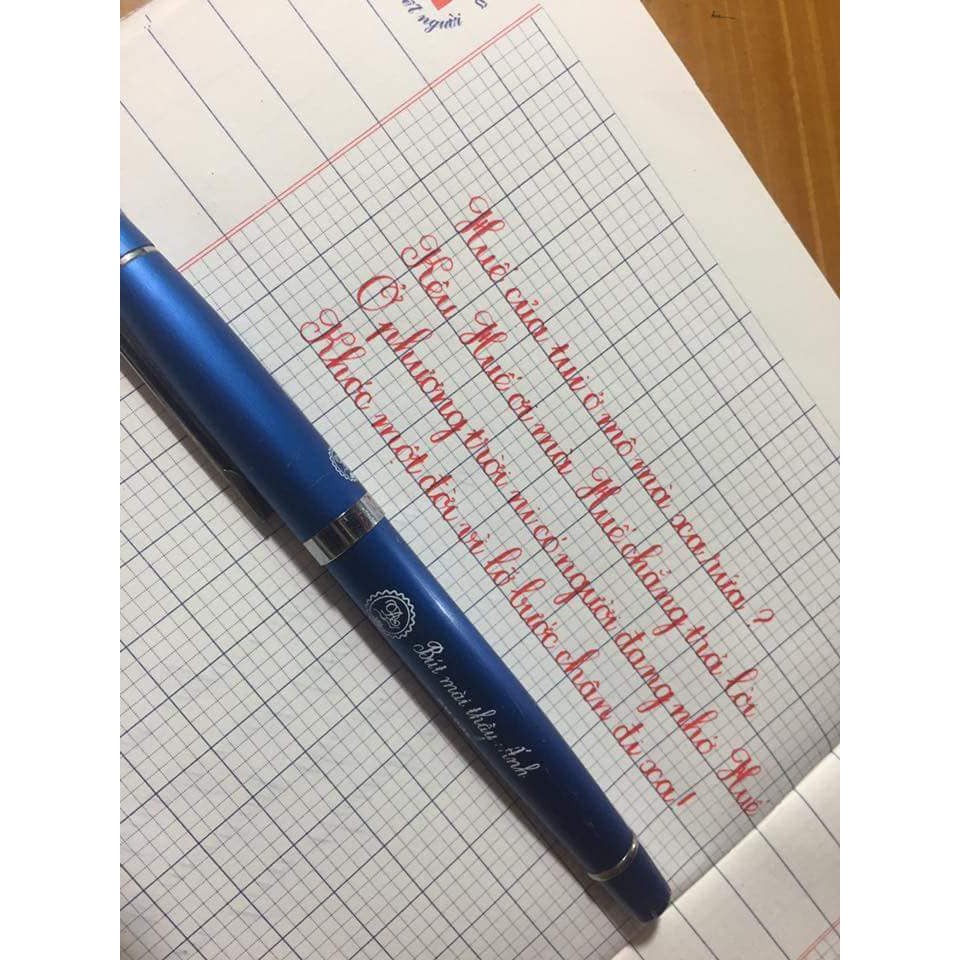 người
Huế của tui ở mô mà xa rứa ?
Kêu Huế ơi mà Huế chẳng trả lời
Ở phương trời ni có người đang nhớ Huế
Khóc một đời vì lỡ bước chân đi xa!
Bút mài thầy Ánh